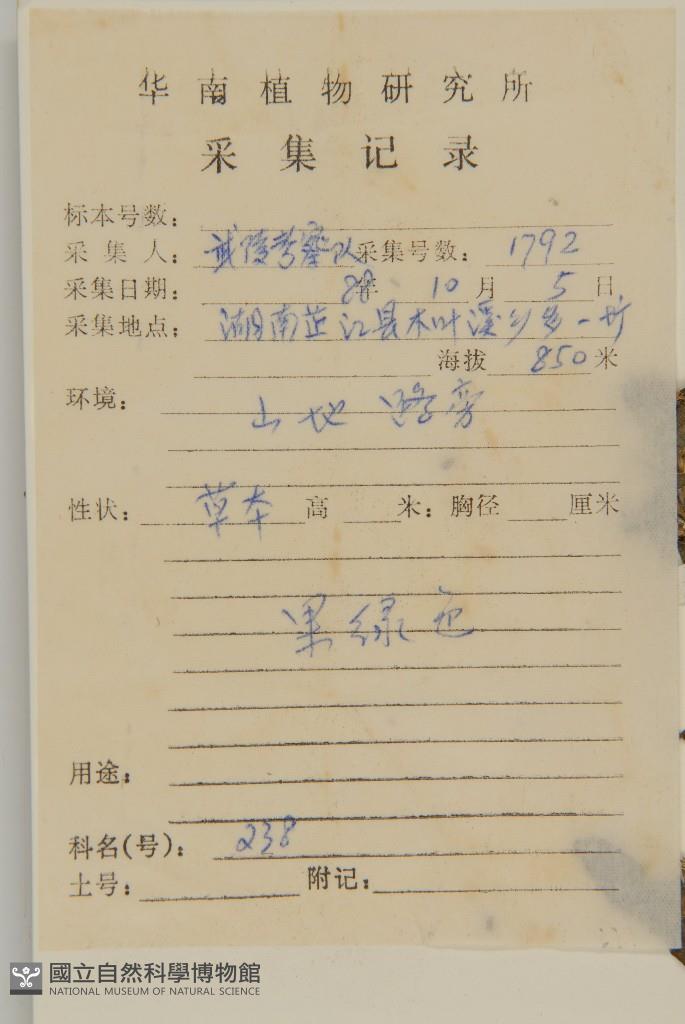 华南植物研究所
采集记录
标本号数：
采集人：武陵考察队 采集号数：1792
采集日期：88年 10月 5日
采集地点：湖南芷江县木叶溪乡
海拔 850米
环境：山地 路旁
性状：草本 高 米：胸径 厘米
果绿色
用途：
科名(号)：238
土号： 附记：
國立自然科學博物館
NATIONAL MUSEUM OF NATURAL SCIENCE